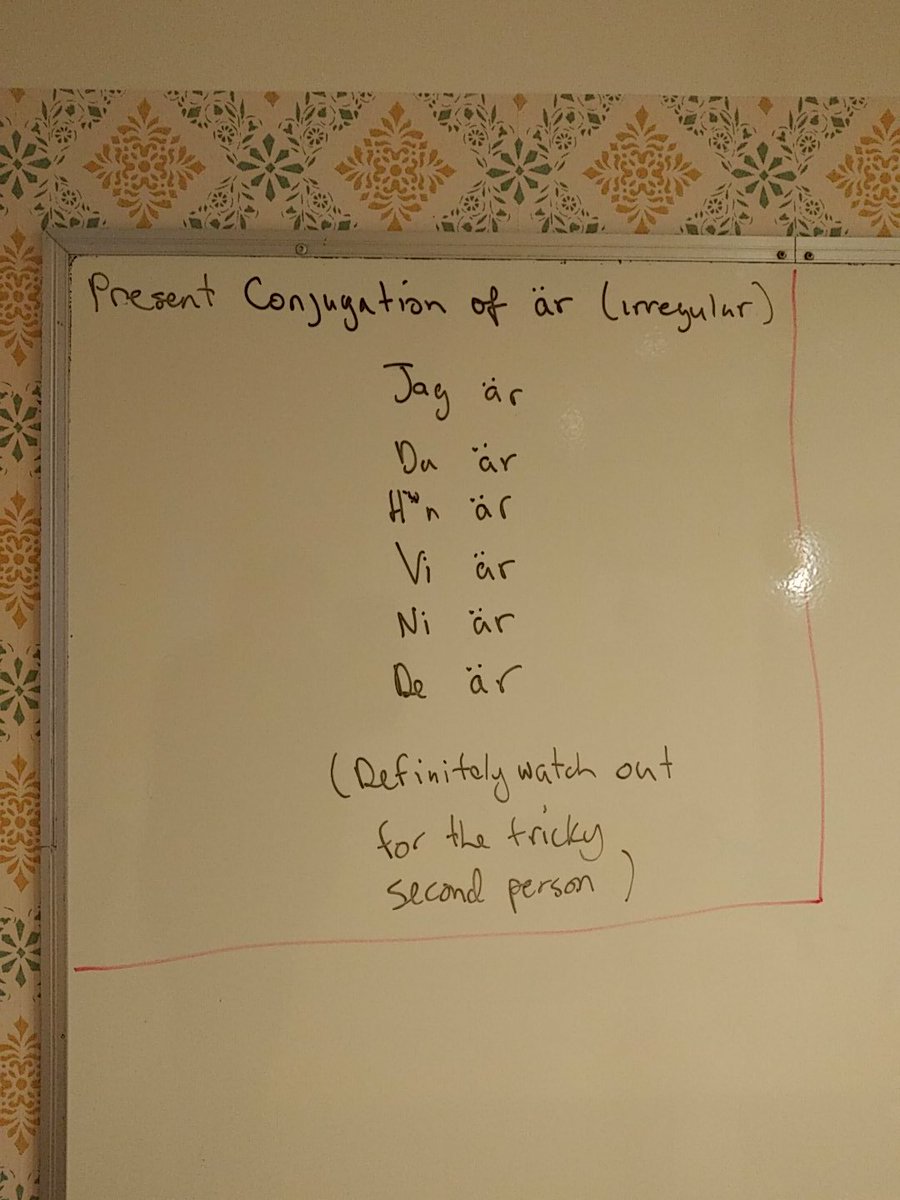 Present Conjugation of är (irregular)
Jag är
Du är
är
Vi är
Ni är
De är
(Definitely watch out
for the tricky
second person)